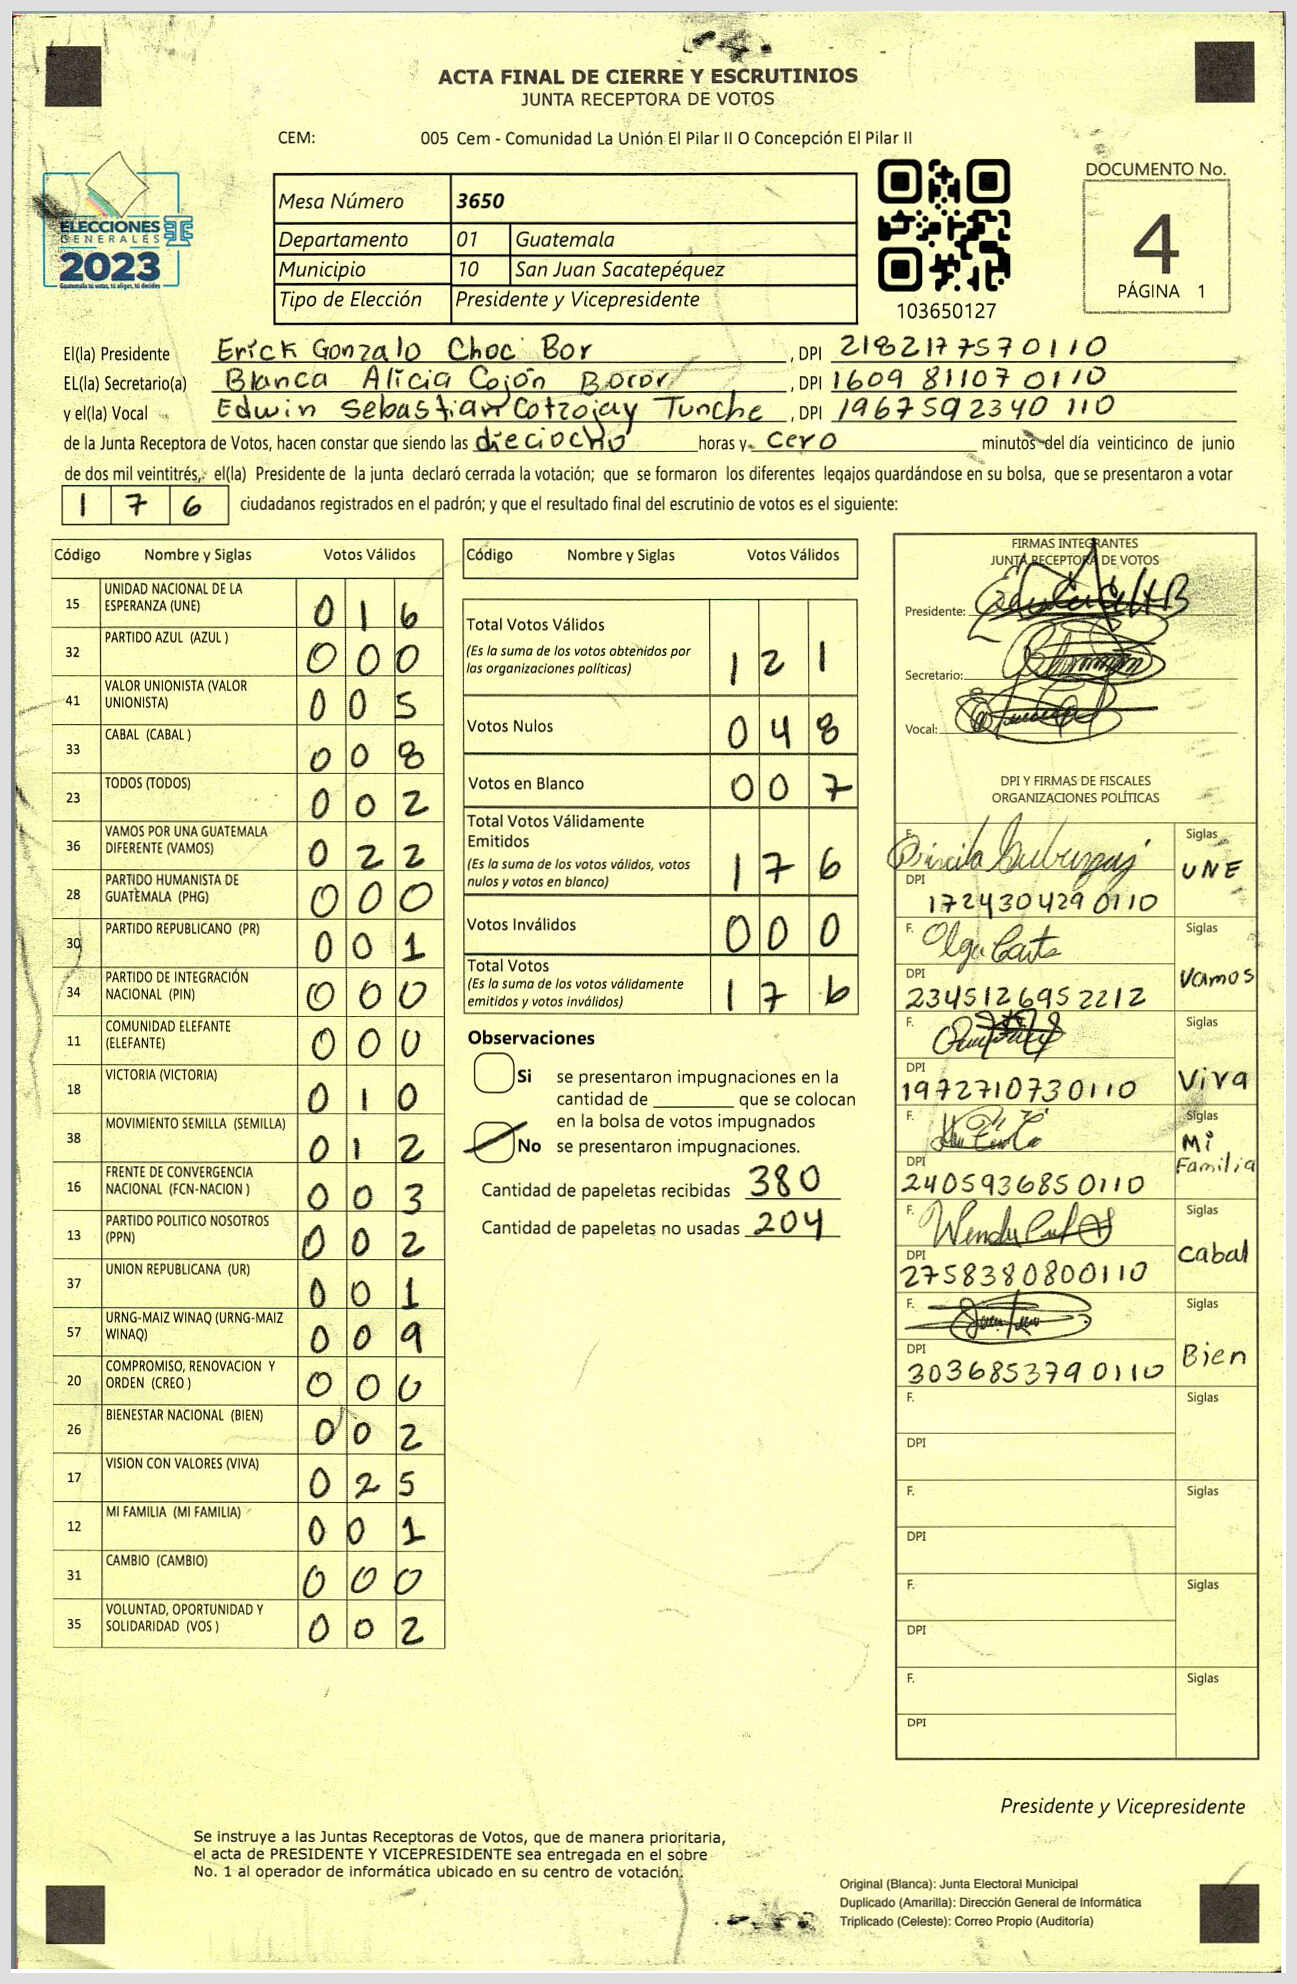 ACTA FINAL DE CIERRE Y ESCRUTINIOS
JUNTA RECEPTORA DE VOTOS
CEM: 005 Cem - Comunidad La Unión El Pilar II O Concepción El Pilar II
ELECCIONES
GENERALES
2023
Guatemala tú votas, tú eliges, tú decides
Mesa Número 3650
Departamento 01 Guatemala
Municipio 10 San Juan Sacatepéquez
Tipo de Elección Presidente y Vicepresidente
103650127
DOCUMENTO No.
4
PÁGINA 1
El(la) Presidente Erick Gonzalo Choc Bor, DPI 2182177570110
EL(la) Secretario(a) Blanca Alicia Cojón Bocor, DPI 1609 81107 0110
y el(la) Vocal Edwin Sebastian Cotzojay Tunche, DPI 1967592340 110
de la Junta Receptora de Votos, hacen constar que siendo las dieciocho horas y cero minutos del día veinticinco de junio
de dos mil veintitrés, el(la) Presidente de la junta declaró cerrada la votación; que se formaron los diferentes legajos guardándose en su bolsa, que se presentaron a votar
176 ciudadanos registrados en el padrón; y que el resultado final del escrutinio de votos es el siguiente:
Código Nombre y Siglas Votos Válidos
15 UNIDAD NACIONAL DE LA ESPERANZA (UNE) 016
32 PARTIDO AZUL (AZUL ) 000
41 VALOR UNIONISTA (VALOR UNIONISTA) 005
33 CABAL (CABAL ) 008
23 TODOS (TODOS) 002
36 VAMOS POR UNA GUATEMALA DIFERENTE (VAMOS) 022
28 PARTIDO HUMANISTA DE GUATEMALA (PHG) 000
30 PARTIDO REPUBLICANO (PR) 001
34 PARTIDO DE INTEGRACIÓN NACIONAL (PIN) 000
11 COMUNIDAD ELEFANTE (ELEFANTE) 000
18 VICTORIA (VICTORIA) 010
38 MOVIMIENTO SEMILLA (SEMILLA) 012
16 FRENTE DE CONVERGENCIA NACIONAL (FCN-NACION ) 003
13 PARTIDO POLITICO NOSOTROS (PPN) 002
37 UNION REPUBLICANA (UR) 001
57 URNG-MAIZ WINAQ (URNG-MAIZ WINAQ) 009
20 COMPROMISO, RENOVACION Y ORDEN (CREO ) 000
26 BIENESTAR NACIONAL (BIEN) 002
17 VISION CON VALORES (VIVA) 025
12 MI FAMILIA (MI FAMILIA) 001
31 CAMBIO (CAMBIO) 000
35 VOLUNTAD, OPORTUNIDAD Y SOLIDARIDAD (VOS ) 002
Código Nombre y Siglas Votos Válidos
Total Votos Válidos 121
(Es la suma de los votos obtenidos por
las organizaciones políticas)
Votos Nulos 048
Votos en Blanco 007
Total Votos Válidamente
Emitidos 176
(Es la suma de los votos válidos, votos
nulos y votos en blanco)
Votos Inválidos 000
Total Votos 176
(Es la suma de los votos válidamente
emitidos y votos inválidos)
Observaciones
Si se presentaron impugnaciones en la
cantidad de ________ que se colocan
en la bolsa de votos impugnados
No se presentaron impugnaciones.
Cantidad de papeletas recibidas 380
Cantidad de papeletas no usadas 204
FIRMAS INTEGRANTES
JUNTA RECEPTORA DE VOTOS
Presidente:
Secretario:
Vocal:
DPI Y FIRMAS DE FISCALES
ORGANIZACIONES POLÍTICAS
F. Siglas UNE
DPI 1724304290110
F. Olga Siglas Vamos
DPI 2345126952212
F. Siglas Viva
DPI 1972710730110
F. Siglas Mi Familia
DPI 2405936850110
F. Wendy Siglas Cabal
DPI 2758380800110
F. Siglas Bien
DPI 3036853790110
F. Siglas
DPI
F. Siglas
DPI
F. Siglas
DPI
F. Siglas
DPI
Presidente y Vicepresidente
Se instruye a las Juntas Receptoras de Votos, que de manera prioritaria,
el acta de PRESIDENTE Y VICEPRESIDENTE sea entregada en el sobre
No. 1 al operador de informática ubicado en su centro de votación.
Original (Blanca): Junta Electoral Municipal
Duplicado (Amarilla): Dirección General de Informática
Triplicado (Celeste): Correo Propio (Auditoría)